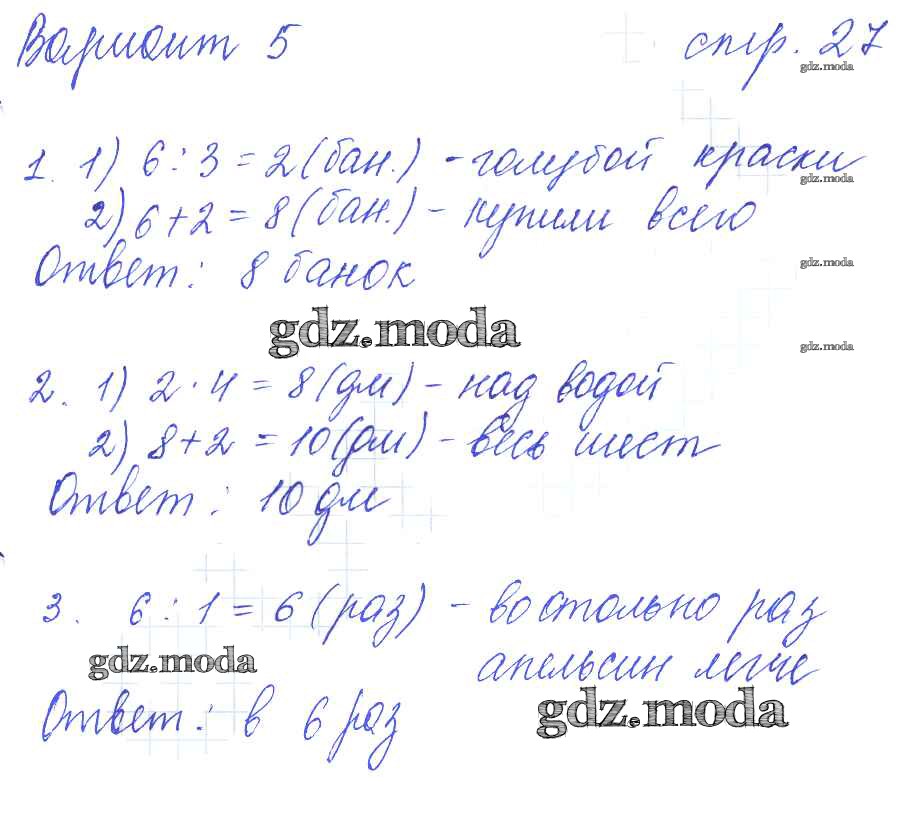 Вариант 5 стр. 27
gdz.moda
1. 1) 6 : 3 = 2 (бан.) - голубой краски
gdz.moda
2) 6 + 2 = 8 (бан.) - купили всего
Ответ: 8 банок
gdz.moda
gdz.moda
gdz.moda
2. 1) 2 · 4 = 8 (дм) - над водой
2) 8 + 2 = 10 (дм) - весь шест
Ответ: 10 дм
3. 6 : 1 = 6 (раз) - во столько раз
gdz.moda
апельсин легче
gdz.moda
Ответ: в 6 раз